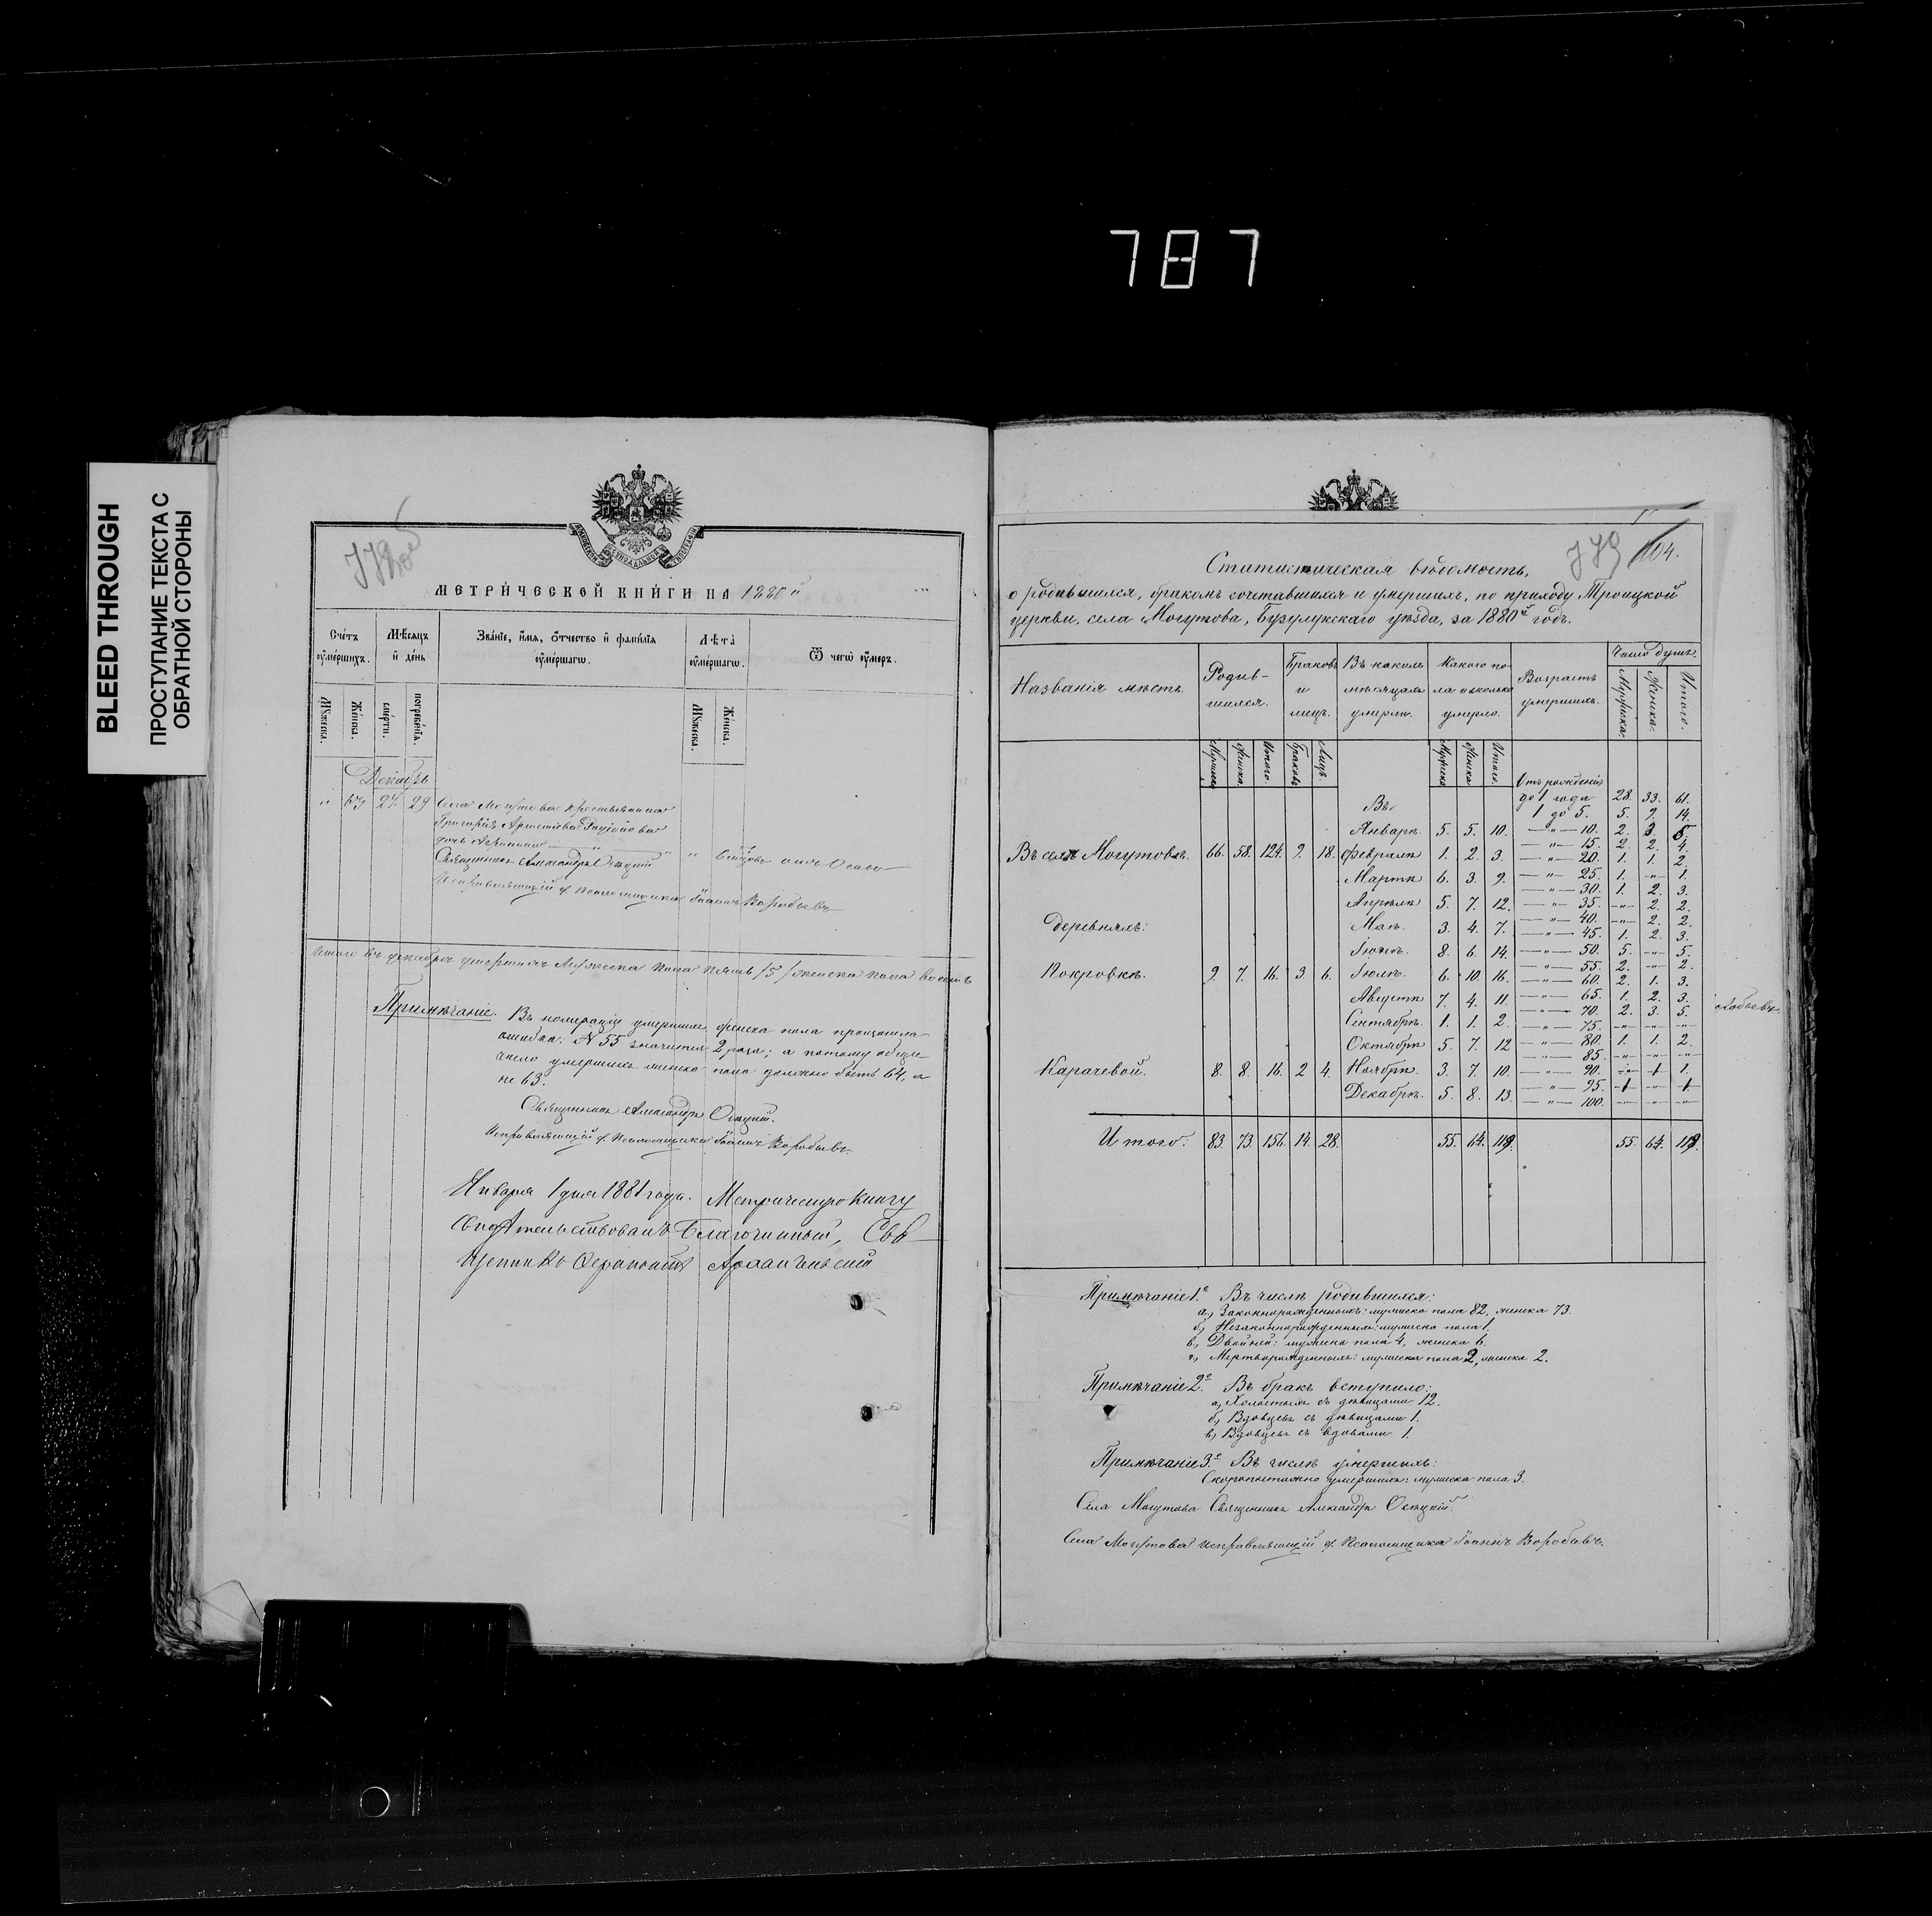 787
BLEED THROUGH
ПРОСТУПАНИЕ ТЕКСТА С
ОБРАТНОЙ СТОРОНЫ
МЕТРИ́ЧЕСКОЙ КНИ́ГИ НА 1880й
Сче́тъ ᲂу҆ме́ршихъ.
Мѣ́сяцъ и҆ де́нь
Зва́нїе, и҆́мя, ѻ҆́тчество и҆ фами́лїя ᲂу҆ме́ршагѡ.
Лѣ́та̀ ᲂу҆ме́ршагѡ.
Ѿ чегѡ̀ ᲂу҆́меръ.
Мꙋ́жеска.
Же́нска.
сме́рти.
погребе́нїѧ.
Мꙋ́жеска.
Же́нска.
Декабрь
" 63 27. 29 Села Могутова крестьянина
Григорія
дочь
Священникъ Александръ Осецкій
Исправляющій д. Псаломщика Іоаннъ Воробьевъ
Итого въ декабрѣ умершихъ Мужеска пола пять /5/ женска пола восемь
Примѣчаніе. Въ нумераціи умершихъ женска пола произошла
ошибка: № 55 значится 2 раза; а потому общее
число умершихъ женска пола должно быть 64, а
не 63.
Священникъ Александръ Осецкій.
Исправляющій д. Псаломщика Іоаннъ Воробьевъ.
Января 1 дня 1881 года. Метрическую книгу
свидѣтельствовалъ Благочинный, Свя-
щенникъ Ѳерапонтъ Архангельскій
779 104.
Статистическая вѣдомость,
о родившихся, бракомъ сочетавшихся и умершихъ, по приходу Троицкой
церкви, села Могутова, Бузулукскаго уѣзда, за 1880й годъ.
Названія мѣстъ.
Родив-
шихся.
Браковъ
и
лицъ.
Въ какомъ
мѣсяцахъ
умерли.
Какого по-
ла и сколько
умерло.
Возрастъ
умершихъ.
Число душъ.
Мужска.
Женска.
Итого.
Мужска Женска Итого. Браковъ Лицъ. Мужска Женска Итого.
Отъ рожденія
Въ до 1 года 28. 33. 61.
1 до 5. 5. 9. 14.
Январѣ. 5. 5. 10. —"— 10. 2. 3. 5.
—"— 15. 2. 2. 4.
Въ селѣ Могутовѣ. 66. 58. 124. 9. 18. Февралѣ 1. 2. 3. —"— 20. 1. 1. 2.
Мартѣ 6. 3. 9. —"— 25. 1. —"— 1.
—"— 30. 1. 2. 3.
Апрѣлѣ 5. 7. 12. —"— 35. —"— 2. 2.
—"— 40. —"— 2. 2.
Деревняхъ: Маѣ. 3. 4. 7. —"— 45. 1. 2. 3.
Іюнѣ. 8. 6. 14. —"— 50. 5. —"— 5.
—"— 55. 2. —"— 2.
Покровкѣ. 9. 7. 16. 3. 6. Іюлѣ. 6. 10. 16. —"— 60. 2. 1. 3.
Августѣ 7. 4. 11. —"— 65. 1. 2. 3.
—"— 70. 2. 3. 5.
Сентябрѣ. 1. 1. 2. —"— 75. —"— —"— —"—
Октябрѣ 5. 7. 12 —"— 80. 1. 1. 2.
—"— 85. —"— —"— —"—
Карачевой. 8. 8. 16. 2 4. Ноябрѣ. 3. 7. 10. —"— 90. —"— 1 1.
—"— 95. 1 —"— 1
Декабрѣ. 5. 8. 13. —"— 100. —"— —"— —"—
Итого: 83. 73. 156. 14. 28. 55. 64. 119. 55. 64. 119.
Примѣчаніе 1.е Въ числѣ родившихся:
а, Законнорожденныхъ: мужеска пола 82, женска 73.
б, Незаконнорожденныхъ: мужеска пола 1.
в, Двойней: мужеска пола 4, женска 6.
г, Мертворожденныхъ: мужеска пола 2, женска 2.
Примѣчаніе 2.е Въ бракъ вступило:
а, Холостыхъ съ дѣвицами 12.
б, Вдовцевъ съ дѣвицами 1.
в, Вдовцевъ съ вдовами 1.
Примѣчаніе 3.е Въ числѣ умершихъ:
Скоропостижно умершихъ: мужеска пола 3.
Села Могутова Священникъ Александръ Осецкій.
Села Могутова исправляющій д. Псаломщика Іоаннъ Воробьевъ.